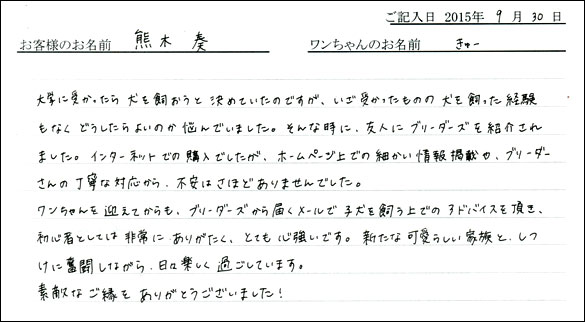 ご記入日 2015年 9月 30日
お客様のお名前 熊木 奏 ワンちゃんのお名前 きゅー
大学に受かったら犬を飼おうと決めていたのですが、いざ受かったものの犬を飼った経験
もなくどうしたらよいのか悩んでいました。そんな時に、友人にブリーダーズを紹介され
ました。インターネットでの購入でしたが、ホームページ上での細かい情報掲載や、ブリーダー
さんの丁寧な対応から、不安はさほどありませんでした。
ワンちゃんを迎えてからも、ブリーダーズから届くメールで子犬を飼う上でのアドバイスを頂き、
初心者としては非常にありがたく、とても心強いです。新たな可愛らしい家族と、しつ
けに奮闘しながら、日々楽しく過ごしています。
素敵なご縁をありがとうございました!